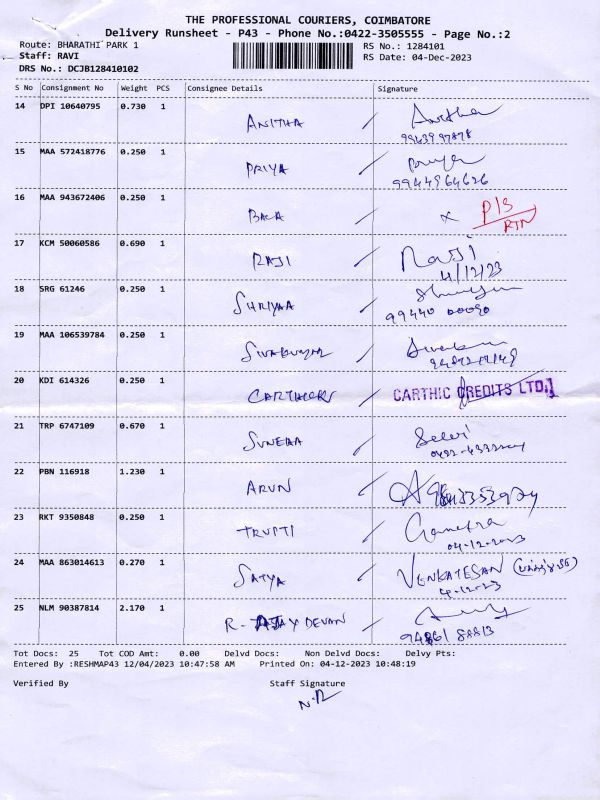 THE PROFESSIONAL COURIERS, COIMBATORE
Delivery Runsheet - P43 - Phone No.:0422-3505555 - Page No.:2
Route: BHARATHI PARK 1 RS No.: 1284101
Staff: RAVI RS Date: 04-Dec-2023
DRS No.: DCJB128410102
S No Consignment No Weight PCS Consignee Details Signature
14 DPI 10640795 0.730 1 ANITHA / Anitha
15 MAA 572418776 0.250 1 PRIYA / Priya
9944964626
16 MAA 943672406 0.250 1 BALA / x P/S
RTN
17 KCM 50060586 0.690 1 RAJI / Raji
4/12/23
18 SRG 61246 0.250 1 SHRIYAA /
99440 00090
19 MAA 106539784 0.250 1 /
20 KDI 614326 0.250 1 / CARTHIC CREDITS LTD.
21 TRP 6747109 0.670 1 / Selvi
22 PBN 116918 1.230 1 ARUN /
23 RKT 9350848 0.250 1 TRUPTI /
04-12-2023
24 MAA 863014613 0.270 1 SATYA / VENKATESAN
4-12-23
25 NLM 90387814 2.170 1 R- AJAY DEVAN /
Tot Docs: 25 Tot COD Amt: 0.00 Delvd Docs: Non Delvd Docs: Delvy Pts:
Entered By :RESHMAP43 12/04/2023 10:47:58 AM Printed On: 04-12-2023 10:48:19
Verified By Staff Signature